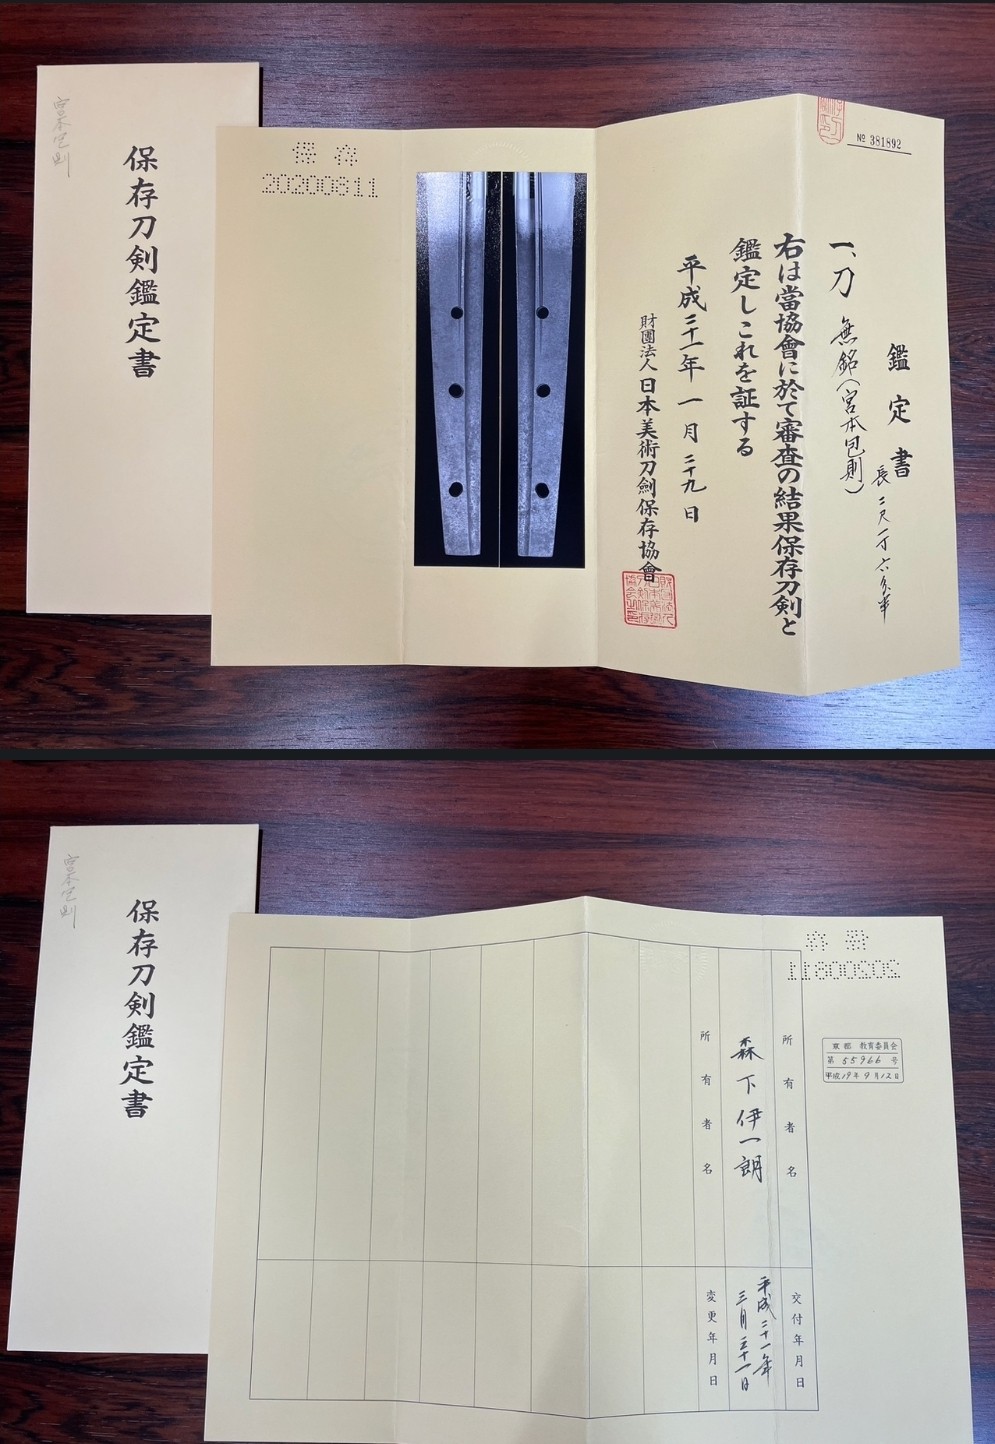 宮本包則
保存刀剣鑑定書
保存
20200811
№ 381892
鑑定書
一、刀 無銘(宮本包則)
長二尺一寸六分半
右は當協會に於て審査の結果保存刀剣と
鑑定しこれを証する
平成二十一年一月二十九日
財團法人日本美術刀劍保存協會
宮本包則
保存刀剣鑑定書
保存
20200811
東京都教育委員会
第55966号
平成19年9月12日
所有者名
森下伊一朗
所有者名
交付年月日
平成二十一年
三月三十一日
変更年月日